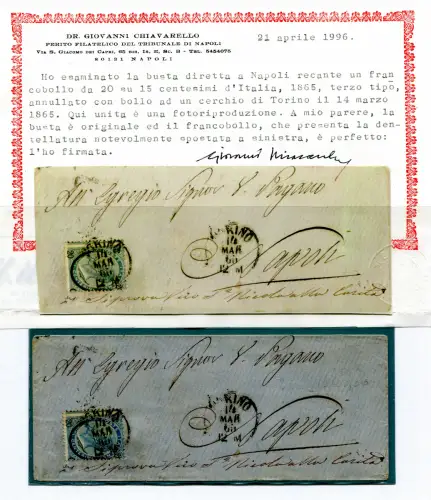 DR. GIOVANNI CHIAVARELLO
PERITO FILATELICO DEL TRIBUNALE DI NAPOLI
Via S. Giacomo dei Capri, 65 bis, Is. 2, Sc. B - Tel. 5454075
80131 NAPOLI
21 aprile 1996.
Ho esaminato la busta diretta a Napoli recante un fran
cobollo da 20 su 15 centesimi d'Italia, 1865, terzo tipo,
annullato con bollo ad un cerchio di Torino il 14 marzo
1865. Qui unita è una fotoriproduzione. A mio parere, la
busta è originale ed il francobollo, che presenta la den-
tellatura notevolmente spostata a sinistra, è perfetto:
l'ho firmata.
All' Egregio Signor V. Pagano
TORINO
14
MAR
65
12 M
Napoli
All' Egregio Signor V. Pagano
TORINO
14
MAR
65
12 M
Napoli